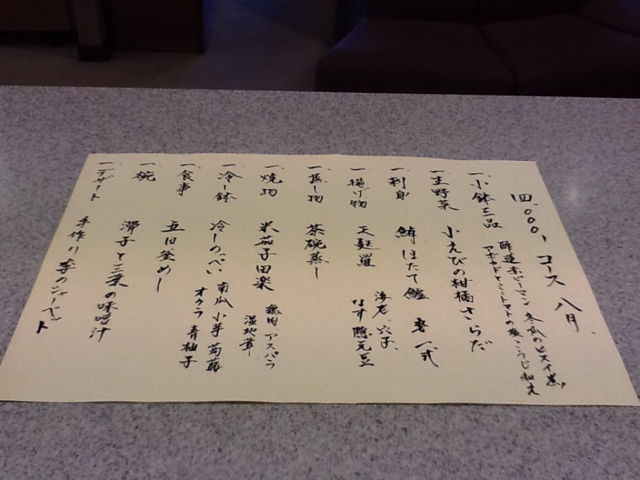 四.000、コース 八月.
一、小鉢三品
酢蓮 赤ピーマン 冬瓜のヒスイ煮
アボカドとミニトマトの塩こうじ和え
一 生野菜 小えびの柑橘さらだ
一 刺身 ほたて 妻一式
一 揚げ物 天麩羅 海老 穴子
なす 隠元豆
一 蒸し物 茶碗蒸し
一 焼物 米茄子田楽 鶏肉 アスパラ
湿地茸
一 冷し鉢 冷しのっぺい 南瓜 小芋 蒟蒻
オクラ 青柚子
一 食事 五目釜めし
一 椀 滑子と三葉の味噌汁
一 デザート 手作り 李のシャーベット